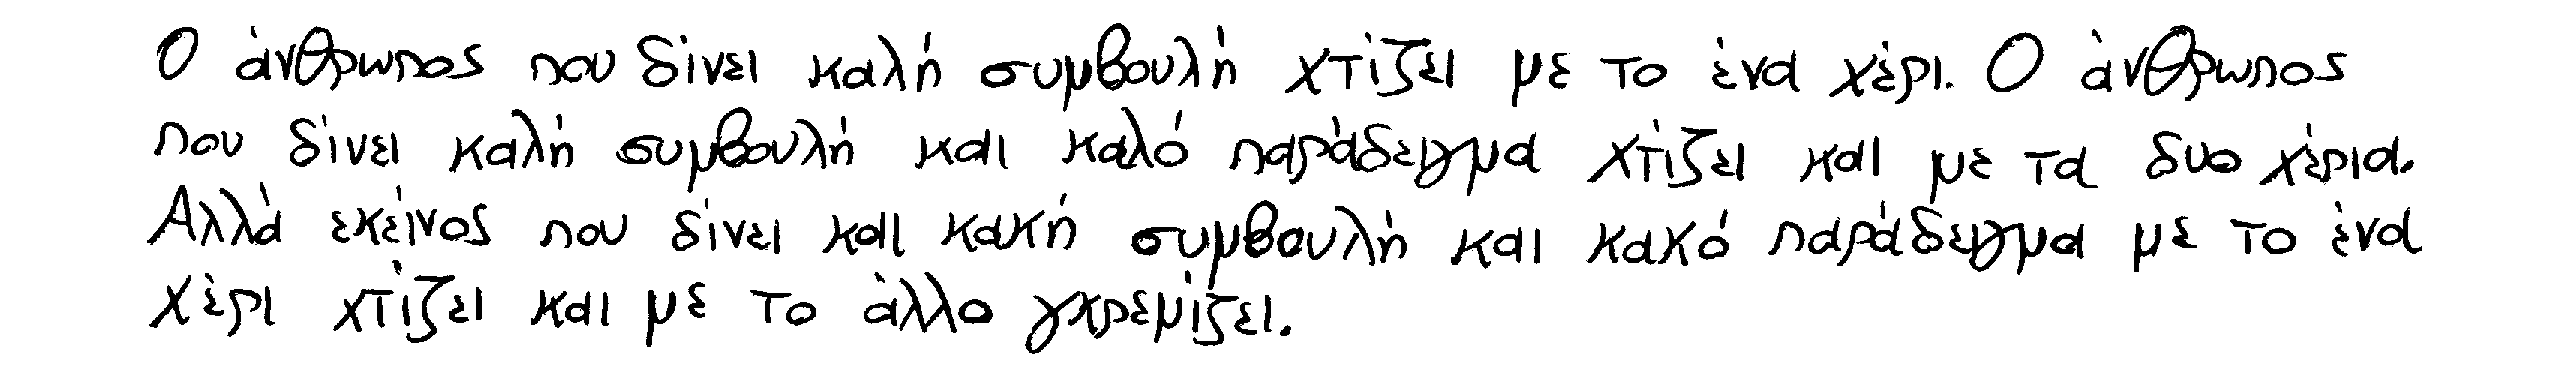 Ο άνθρωπος που δίνει καλή συμβουλή χτίζει με το ένα χέρι. Ο άνθρωπος
που δίνει καλή συμβουλή και καλό παράδειγμα χτίζει και με τα δυο χέρια.
Αλλά εκείνος που δίνει και κακή συμβουλή και κακό παράδειγμα με το ένα
χέρι χτίζει και με το άλλο γκρεμίζει.